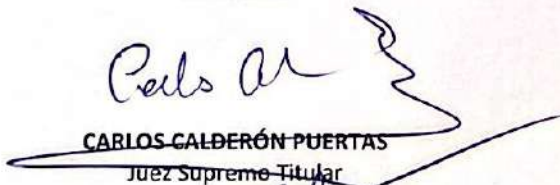 CARLOS CALDERÓN PUERTAS
Juez Supremo Titular